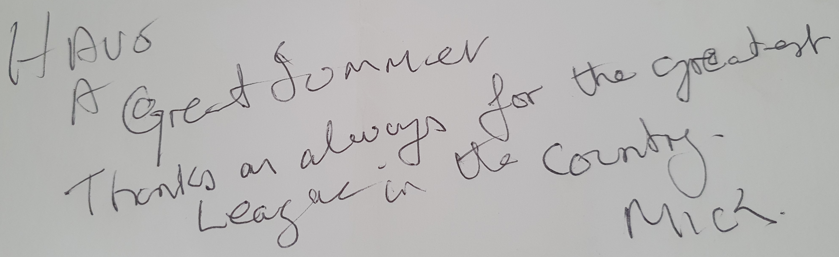 Have
A Great Summer
Thanks as always for the greatest
League in the Country.
Mick.